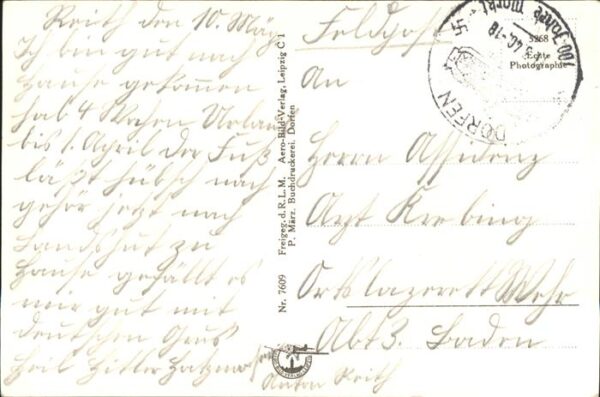 Reith den 10. März
Ich bin gut nach
Hause gekommen
hab 4 Wochen Urlaub
bis 1. April der Fuß
läßt hübsch nach
gehör jetzt nach
Landshut zu
Hause gefällt es
mir gut mit
deutschen Grus
Heil Hitler
Anton Reith
Nr. 7609 Freigeg. d. R. L. M. Aero-Bild-Verlag, Leipzig C 1
P. März, Buchdruckerei, Dorfen
Feldpost
DORFEN
Jahre Markt
5268
Echte
Photographie
An
Herrn Assidenz
Arzt Krebing
Ortslazerett Wehr
Abt 3. Baden